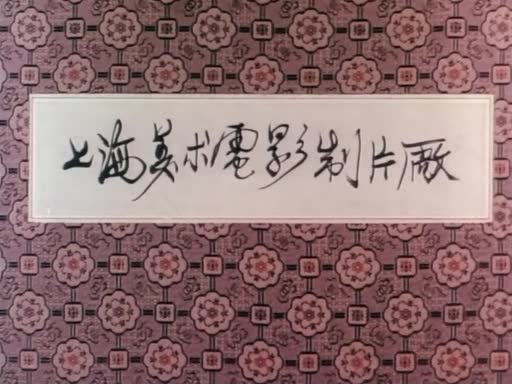 上海美术電影制片厰